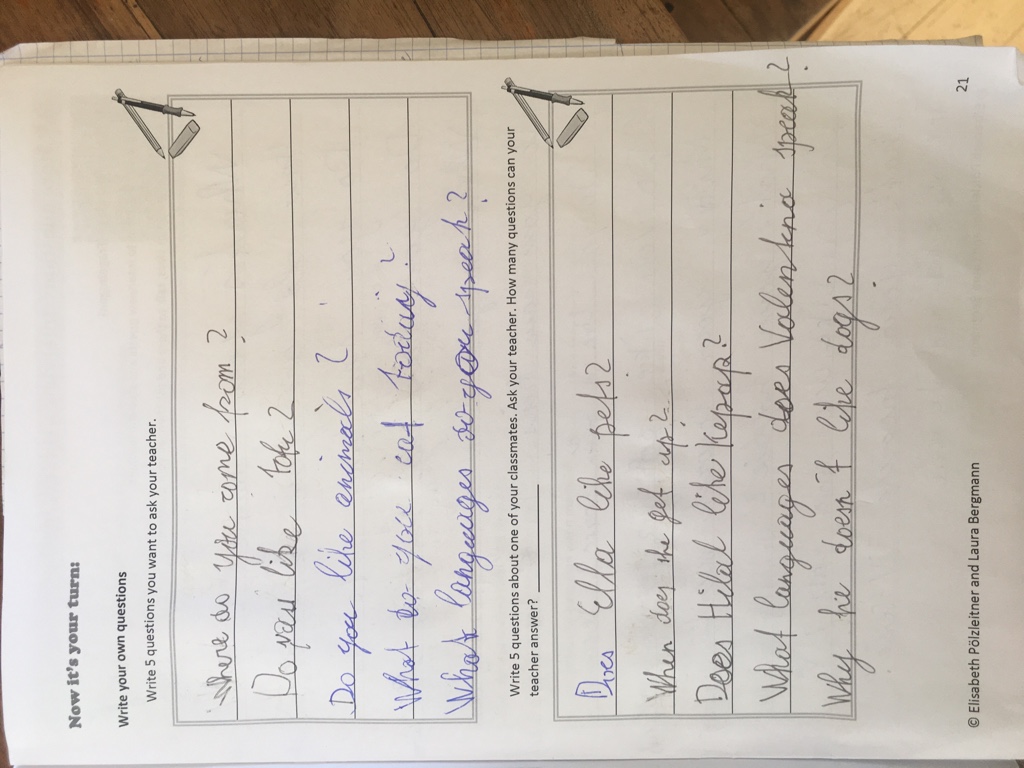 Now it's your turn:
Write your own questions
Write 5 questions you want to ask your teacher.
Where do you come from?
Do you like
Do you like animals?
What do you eat today?
What languages do you speak?
Write 5 questions about one of your classmates. Ask your teacher. How many questions can your
teacher answer? ____________
Does Ella like pets?
When does she get up?
Does Hilal like Kepap?
What languages does Valentina speak?
Why he doesn't like dogs?
© Elisabeth Pölzleitner and Laura Bergmann
21